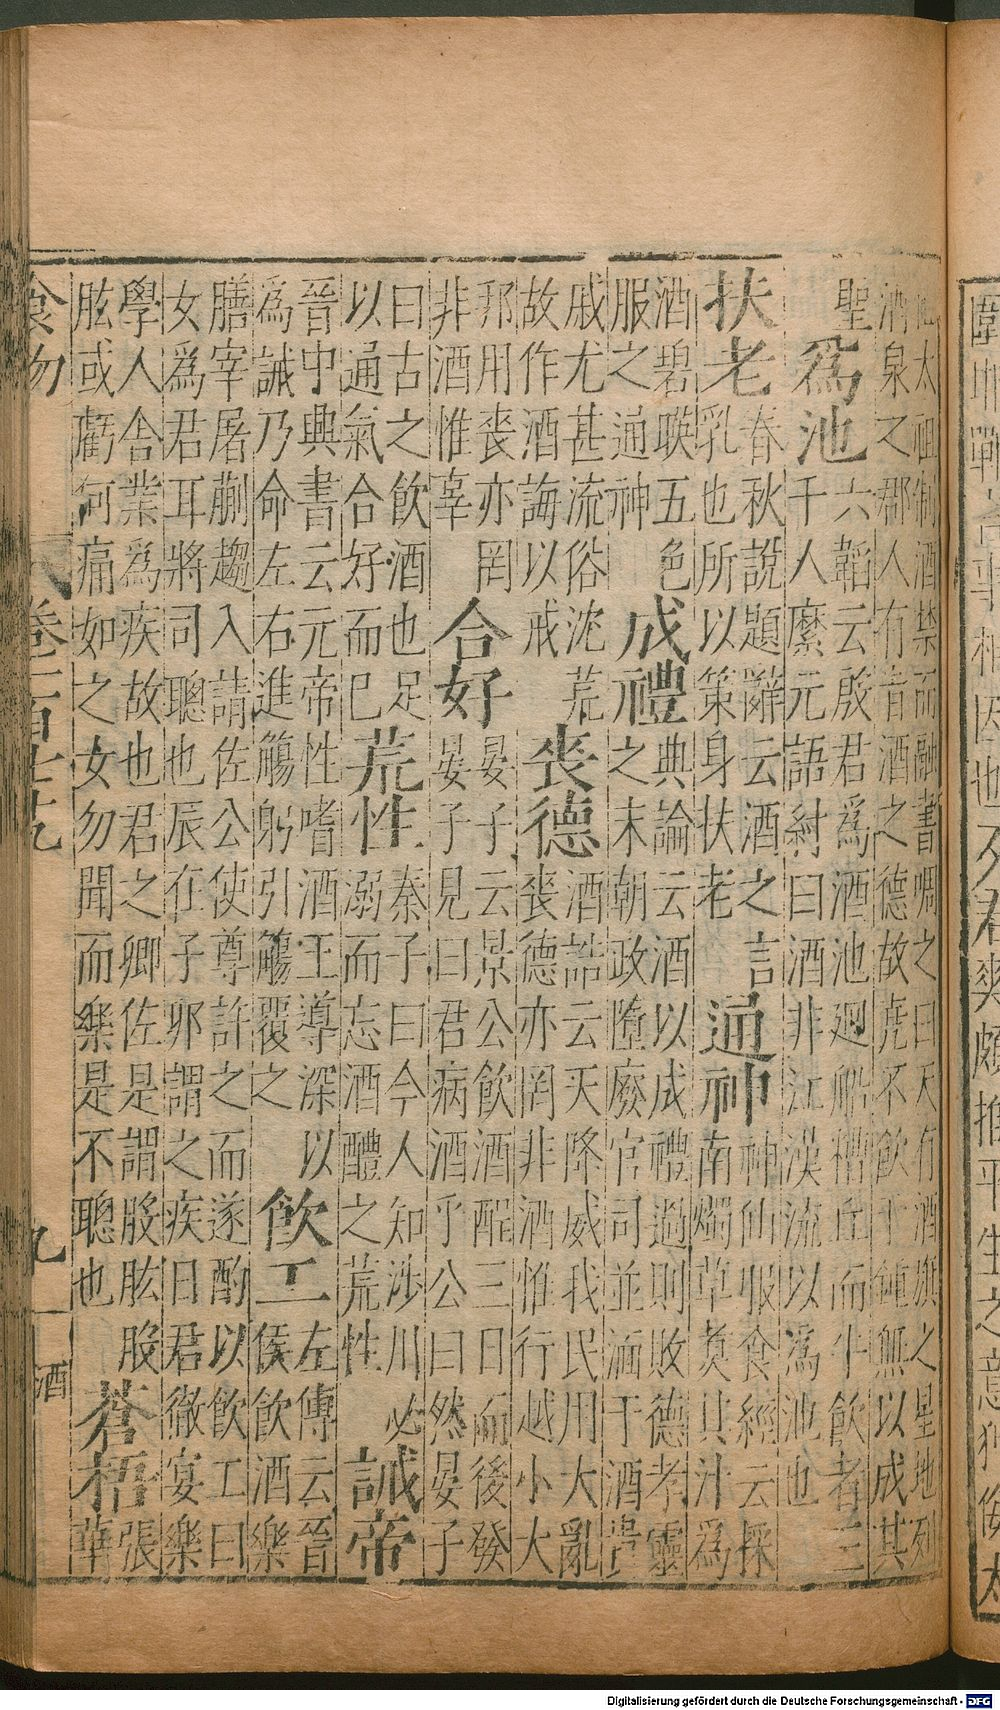 太祖制酒禁而融書啁之曰天有酒旗之星地列
酒泉之郡人有旨酒之德故堯不飲千鍾無以成其
聖
爲池
六韜云殷君爲酒池廻船糟丘而牛飲者三
千人縻元語紂曰酒非江漢流以為池也
扶老
春秋說題辭云酒之言
乳也所以策身扶老
通神
神仙服食經云採
南燭草煑其汁為
酒碧暎五色
服之通神
成禮
典論云酒以成禮過則敗德孝靈
之末朝政墮廢官司並湎于酒貴
戚尤甚流俗沈荒
故作酒誨以戒
喪德
酒誥云天降威我民用大亂
喪德亦罔非酒惟行越小大
邦用喪亦罔
非酒惟辜
合好
晏子云景公飲酒酲三日而後發
晏子見曰君病酒乎公曰然晏子
曰古之飲酒也足
以通氣合好而已
荒性
秦子曰今人知涉川必
溺而忘酒醴之荒性
誡帝
晉中興書云元帝性嗜酒王導深以
為誡乃命左右進觴躬引觴覆之
飲工
左傳云晉
侯飲酒樂
膳宰屠蒯趨入請佐公使尊許之而遂酌以飲工曰
女為君耳將司聰也辰在子卯謂之疾日君徹宴樂
學人舍業為疾故也君之卿佐是謂股肱股
肱或虧何痛如之女勿聞而樂是不聰也
蒼梧
張
華
食物
卷一百七九
九
酒
Digitalisierung gefördert durch die Deutsche Forschungsgemeinschaft - DFG